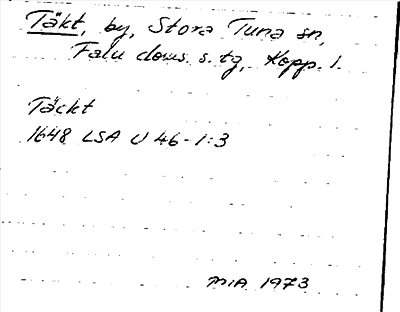 Täkt, by, Stora Tuna sn,
Falu doms. s. tg, Kopp. l.
Täckt
1648 LSA U 46-1:3
MIA 1973